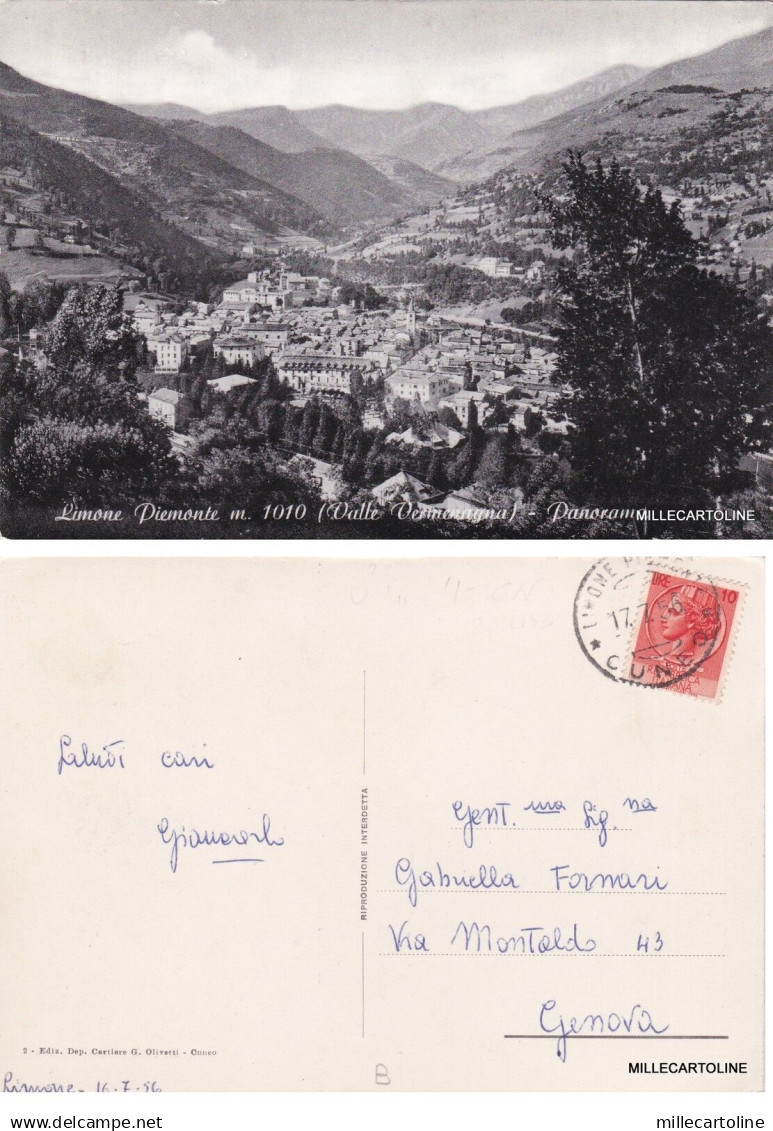 Limone Piemonte m. 1010 (Valle Vermenagna) - Panorama
MILLECARTOLINE
LIMONE PIEMONTE
17.7.56
* CUNEO
LIRE 10
Saluti cari
Gent.ma Sig.na
Gabriella Fornari
Via Montaldo 43
Genova
RIPRODUZIONE INTERDETTA
2 - Ediz. Dep. Cartiere G. Olivetti - Cuneo
Limone - 16-7-56
B
MILLECARTOLINE
delcampe.net
millecartoline